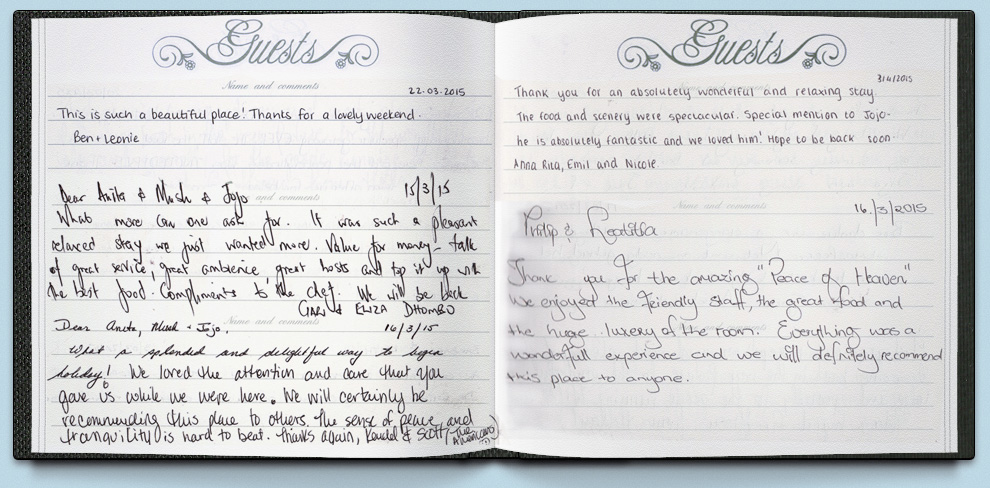 Guests
Name and comments
22.03.2015
This is such a beautiful place! Thanks for a lovely weekend.
Ben + Leonie
Dear Anita & Mush & Jojo 15/3/15
What more can one ask for. It was such a pleasant
relaxed stay we just wanted more. Value for money - talk
of great service; great ambience great hosts and top it up with
the best food. Compliments to the chef. We will be back
GARY & ELIZA DHLOMBO
Name and comments
Dear Anita, Mush + Jojo, 14/3/15
What a splendid and delightful way to begin
holiday! We loved the attention and care that you
gave us while we were here. We will certainly be
recommending this place to others. The sense of peace and
tranquility is hard to beat. Thanks again, Kendal & Scott (The Americans)
Guests
Name and comments
3/4/2015
Thank you for an absolutely wonderful and relaxing stay.
The food and scenery were spectacular. Special mention to Jojo-
he is absolutely fantastic and we loved him! Hope to be back soon
Anna Rita, Emil and Nicole
Name and comments
16/3/2015
Philip &
Thank you for the amazing "Peace of Heaven"
We enjoyed the friendly staff, the great food and
the huge luxery of the room. Everything was a
wonderfull experience and we will definitely recommend
this place to anyone.